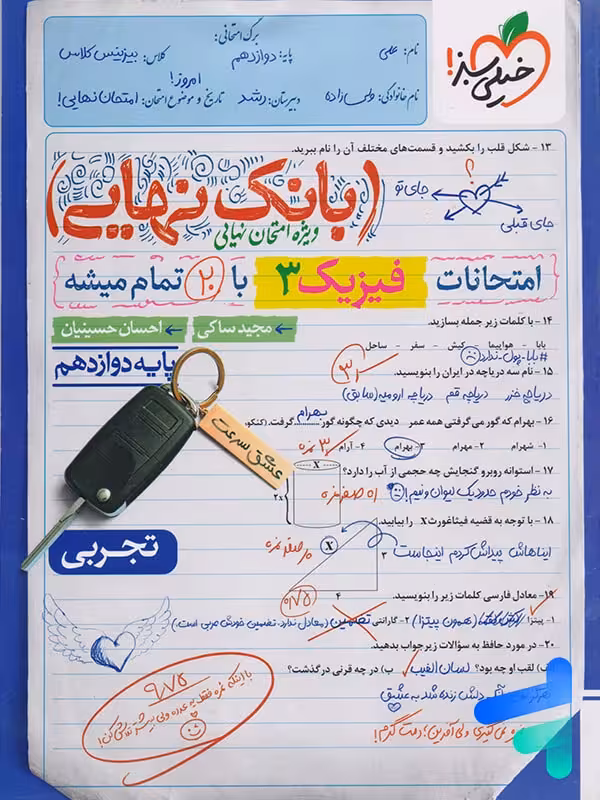 برگ امتحانی:
نام: علی
پایه: دوازدهم
کلاس: بیزینس کلاس
امروز!
نام خانوادگی: ولی‌زاده
دبیرستان: رشد
تاریخ و موضوع امتحان: امتحان نهایی!
خیلی سبز!
۱۳ - شکل قلب را بکشید و قسمت‌های مختلف آن را نام ببرید.
(بانک نهایی)
ویژه امتحان نهایی
؟
جای تو
جای قبلی
امتحانات فیزیک ۳ با ۲۰ تمام میشه
۱۴ - با کلمات زیر جمله بسازید.
مجید ساکی
احسان حسینیان
بابا - هواپیما - کیش - سفر - ساحل
#بابا-پول-ندارد
پایه دوازدهم
۱۵ - نام سه دریاچه در ایران را بنویسید.
دریاچه خزر دریاچه قم دریاچه ارومیه (سابق)
۱۶ - بهرام که گور می‌گرفتی همه عمر دیدی که چگونه گور بهرام گرفت.
۱- شهرام ۲- مهرام ۳- بهرام ۴- آرام
۱۷ - استوانه روبرو گنجایش چه حجمی از آب را دارد؟
به نظر خودم حدود یک لیوان و نیم!
X
۲x
عشق سرعت
۱۸ - با توجه به قضیه فیثاغورث X را بیابید.
ایناهاش پیداش کردم اینجاست
X
۳
۴
تجربی
۱۹ - معادل فارسی کلمات زیر را بنویسید.
۱- پیتزا (همون پیتزا) ۲- گارانتی تضمین (معادل ندارد، تضمین خودش عربی است.)
۲۰ - در مورد حافظ به سؤالات زیر جواب بدهید.
لقب او چه بود؟ لسان الغیب ب) در چه قرنی در گذشت؟
دلش زنده شد به عشق
۹/۷۵